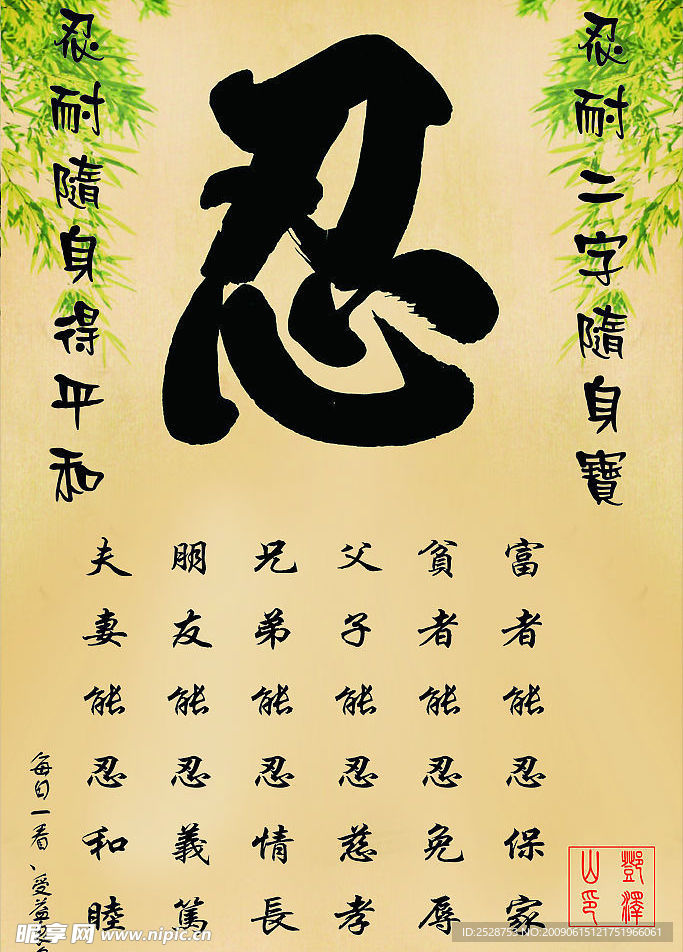 忍
忍耐二字隨身寶
忍耐隨身得平和
富者能忍保家
貧者能忍免辱
父子能忍慈孝
兄弟能忍情長
朋友能忍義篤
夫妻能忍和睦
每日一看、受益
鄧澤
山印
昵享网 www.nipic.cn
ID:2528753 NO:20090615121751966061